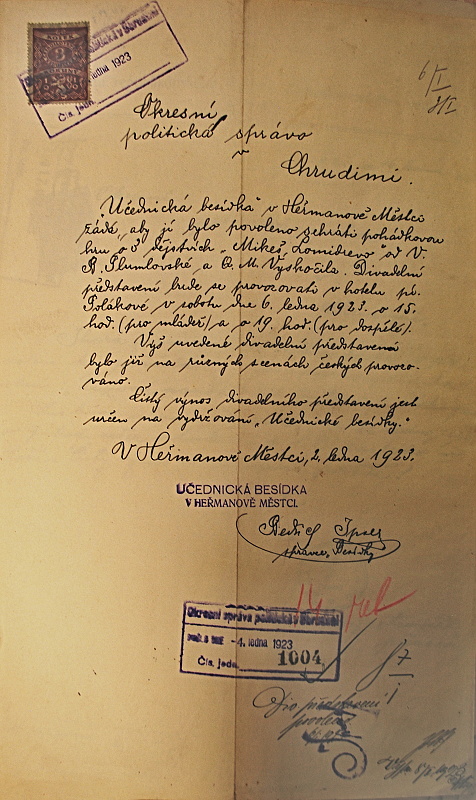 6/I
8/I
Okresní
politická správo
v
Chrudimi.
„Učednická besídka" v Heřmanově Městci
žádá, aby jí bylo povoleno sehráti pohádkovou
hru o 3 dějstvích „Mikeš Lomidřevo" od V.
A. Plumlovské a Q. M. Vyskočila. Divadelní
představení bude se provozovati v hotelu pí.
Polákové v sobotu dne 6. ledna 1923 o 15.
hod. (pro mládež) a o 19. hod. (pro dospělé).
Výš uvedené divadelní představení
bylo již na různých scenách českých provozo-
váno.
Čistý výnos divadelního představení jest
určen na vydržování „Učednické besídky."
V Heřmanově Městci, 2. ledna 1923.
UČEDNICKÁ BESÍDKA
V HEŘMANOVĚ MĚSTCI.
správce „Besídky
Okresní správa politická v Chrudimi
-4. ledna 1923
Čís. jedn. 1004